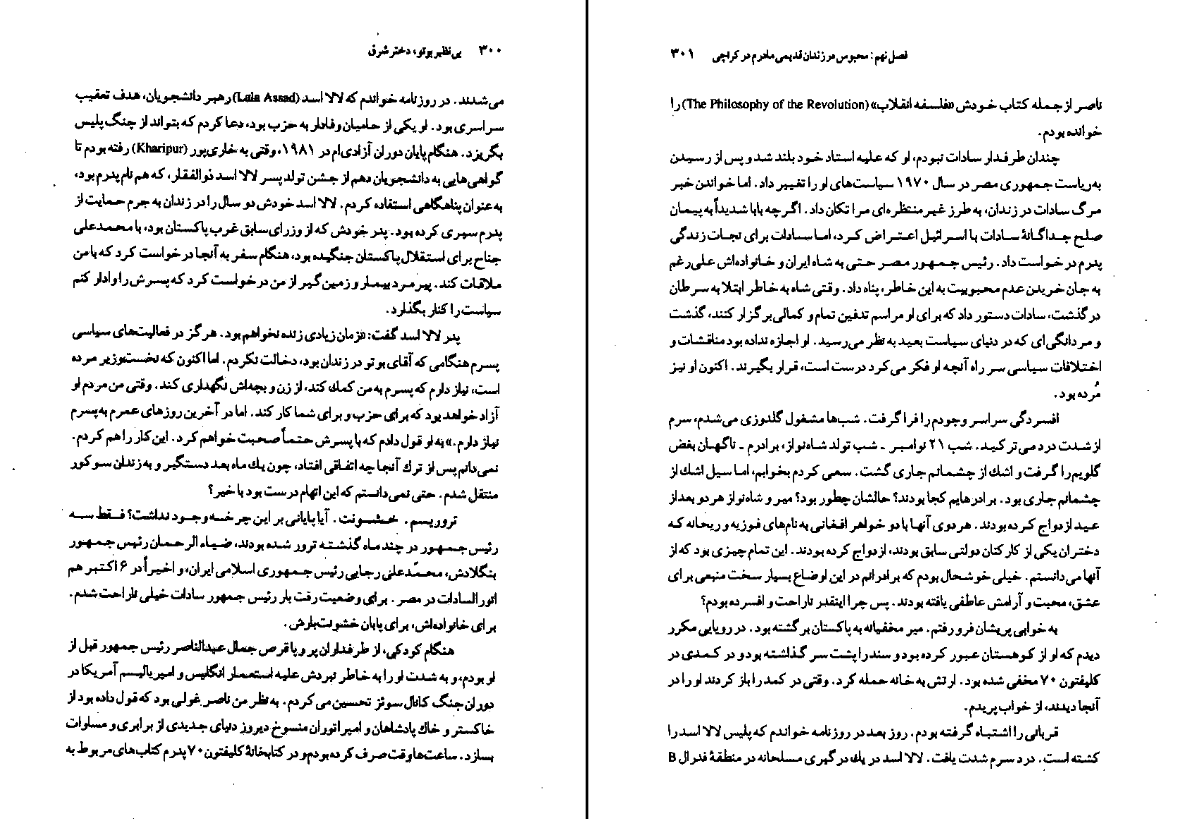 ۳۰۰ بی‌نظیر بوتو، دختر شرق
می‌شدند. در روزنامه خواندم که لالا اسد (Lala Assad) رهبر دانشجویان، هدف تعقیب
سراسری بود. او یکی از حامیان وفادار به حزب بود، دعا کردم که بتواند از چنگ پلیس
بگریزد. هنگام پایان دوران آزادی‌ام در ۱۹۸۱، وقتی به خاری‌پور (Kharipur) رفته بودم تا
گواهی‌هایی به دانشجویان دهم از جشن تولد پسر لالا اسد ذوالفقار، که هم نام پدرم بود،
به عنوان پناهگاهی استفاده کردم. لالا اسد خودش دو سال را در زندان به جرم حمایت از
پدرم سپری کرده بود. پدر خودش که از وزرای سابق غرب پاکستان بود، با محمدعلی
جناح برای استقلال پاکستان جنگیده بود، هنگام سفر به آنجا درخواست کرد که با من
ملاقات کند. پیرمرد بیمار و زمین‌گیر از من درخواست کرد که پسرش را وادار کنم
سیاست را کنار بگذارد.
پدر لالا اسد گفت: «زمان زیادی زنده نخواهم بود. هرگز در فعالیت‌های سیاسی
پسرم هنگامی که آقای بوتو در زندان بود، دخالت نکردم. اما اکنون که نخست‌وزیر مرده
است، نیاز دارم که پسرم به من کمک کند، از زن و بچه‌اش نگهداری کند. وقتی من مردم او
آزاد خواهد بود که برای حزب و برای شما کار کند. اما در آخرین روزهای عمرم به پسرم
نیاز دارم.» به او قول دادم که با پسرش حتماً صحبت خواهم کرد. این کار را هم کردم.
نمی‌دانم پس از ترک آنجا چه اتفاقی افتاد، چون یک ماه بعد دستگیر و به زندان سوکور
منتقل شدم. حتی نمی‌دانستم که این اتهام درست بود یا خیر؟
تروریسم. خشونت. آیا پایانی بر این چرخه وجود نداشت؟ فقط سه
رئیس جمهور در چند ماه گذشته ترور شده بودند، ضیاء الرحمان رئیس جمهور
بنگلادش، محمدعلی رجایی رئیس جمهوری اسلامی ایران، و اخیراً در ۶ اکتبر هم
انور السادات در مصر. برای وضعیت رقت بار رئیس جمهور سادات خیلی ناراحت شدم.
برای خانواده‌اش، برای پایان خشونت‌بارش.
هنگام کودکی، از طرفداران پر و پا قرص جمال عبدالناصر رئیس جمهور قبل از
او بودم، و به شدت او را به خاطر نبردش علیه استعمار انگلیس و امپریالیسم آمریکا در
دوران جنگ کانال سوئز تحسین می‌کردم. به نظر من ناصر غولی بود که قول داده بود از
خاکستر و خاک پادشاهان و امپراتوران منسوخ دیروز دنیای جدیدی از برابری و مساوات
بسازد. ساعت‌ها وقت صرف کرده بودم و در کتابخانهٔ کلیفتون ۷۰ پدرم کتاب‌های مربوط به
فصل نهم: محبوس در زندان قدیمی مادرم در کراچی ۳۰۱
ناصر از جمله کتاب خودش «فلسفه انقلاب» (The Philosophy of the Revolution) را
خوانده بودم.
چندان طرفدار سادات نبودم، او که علیه استاد خود بلند شد و پس از رسیدن
به ریاست جمهوری مصر در سال ۱۹۷۰ سیاست‌های او را تغییر داد. اما خواندن خبر
مرگ سادات در زندان، به طرز غیرمنتظره‌ای مرا تکان داد. اگرچه بابا شدیداً به پیمان
صلح جداگانهٔ سادات با اسرائیل اعتراض کرد، اما سادات برای نجات زندگی
پدرم درخواست داد. رئیس جمهور مصر حتی به شاه ایران و خانواده‌اش علی‌رغم
به جان خریدن عدم محبوبیت به این خاطر، پناه داد. وقتی شاه به خاطر ابتلا به سرطان
درگذشت، سادات دستور داد که برای او مراسم تدفین تمام و کمالی برگزار کنند، گذشت
و مردانگی‌ای که در دنیای سیاست بعید به نظر می‌رسید. او اجازه نداده بود مناقشات و
اختلافات سیاسی سر راه آنچه او فکر می‌کرد درست است، قرار بگیرند. اکنون او نیز
مُرده بود.
افسردگی سراسر وجودم را فرا گرفت. شب‌ها مشغول گلدوزی می‌شدم، سرم
از شدت درد می‌ترکید. شب ۲۱ نوامبر - شب تولد شاه‌نواز، برادرم - ناگهان بغض
گلویم را گرفت و اشک از چشمانم جاری گشت. سعی کردم بخوابم، اما سیل اشک از
چشمانم جاری بود. برادرهایم کجا بودند؟ حالشان چطور بود؟ میر و شاه‌نواز هر دو بعد از
عید ازدواج کرده بودند. هردوی آنها با دو خواهر افغانی به نام‌های فوزیه و ریحانه که
دختران یکی از کارکنان دولتی سابق بودند، ازدواج کرده بودند. این تمام چیزی بود که از
آنها می‌دانستم. خیلی خوشحال بودم که برادرانم در این اوضاع بسیار سخت منبعی برای
عشق، محبت و آرامش عاطفی یافته بودند. پس چرا اینقدر ناراحت و افسرده بودم؟
به خوابی پریشان فرو رفتم. میر مخفیانه به پاکستان برگشته بود. در رویایی مکرر
دیدم که او از کوهستان عبور کرده بود و سند را پشت سر گذاشته بود و در کمدی در
کلیفتون ۷۰ مخفی شده بود. ارتش به خانه حمله کرد. وقتی در کمد را باز کردند او را در
آنجا دیدند، از خواب پریدم.
قربانی را اشتباه گرفته بودم. روز بعد در روزنامه خواندم که پلیس لالا اسد را
کشته است. درد سرم شدت یافت. لالا اسد در یک درگیری مسلحانه در منطقهٔ فدرال B